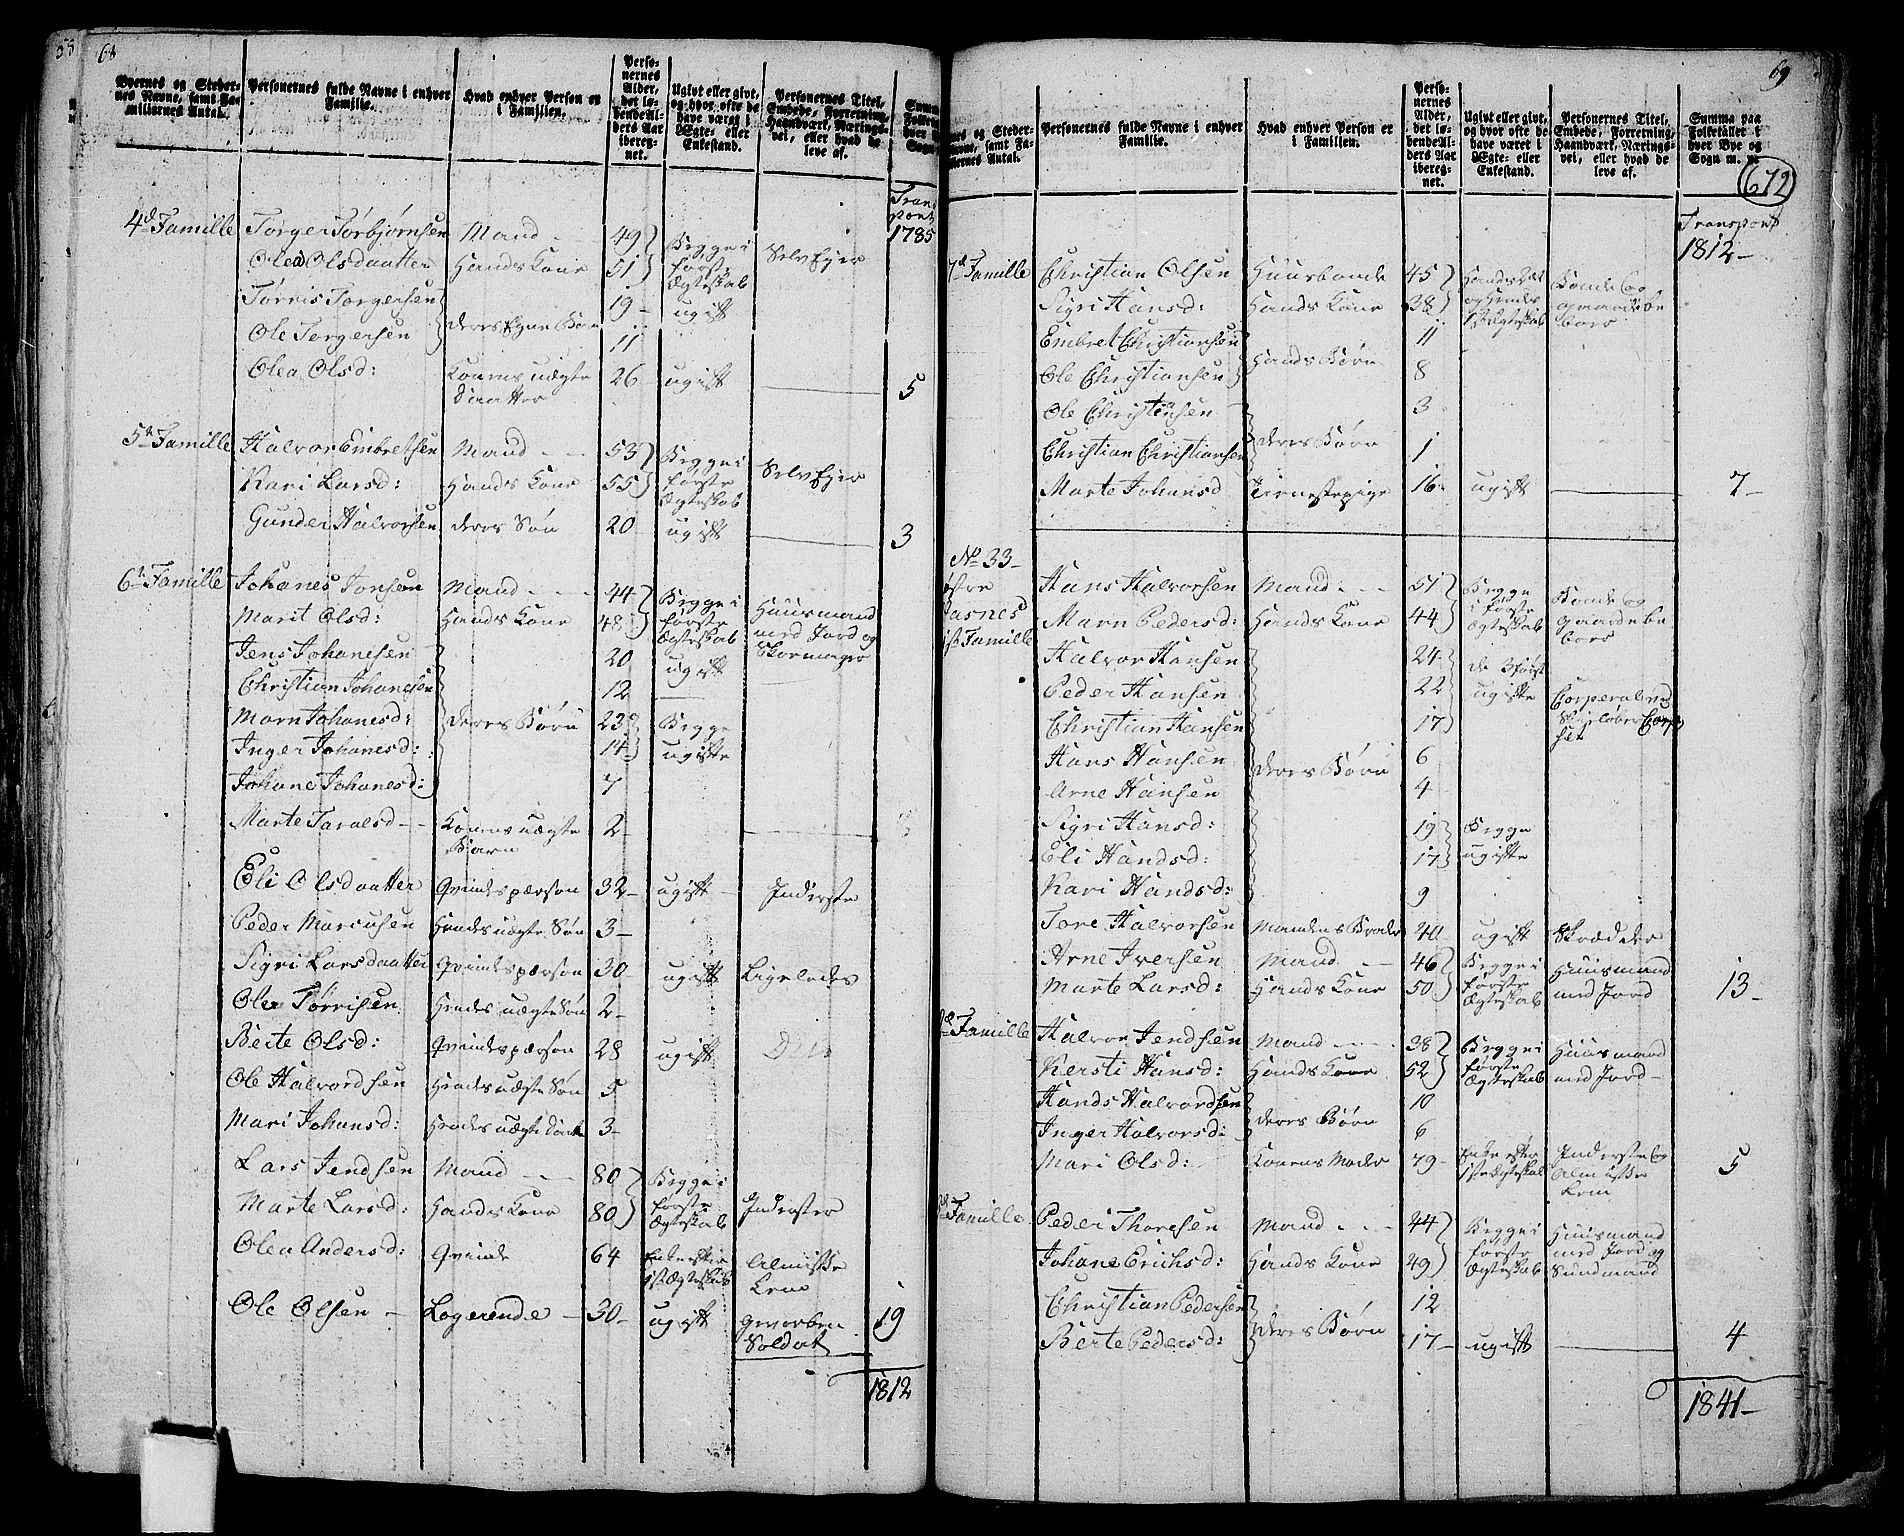 68
Byernes og Steder-
nes Navne, samt Fa-
miliernes Antal.
Personernes fulde Navne i enhver
Familie.
Hvad enhver Person er
i Familien.
Perso-
nernes
Alder,
det lø-
bende Al-
ders Aar
ibereg-
net.
Ugivt eller givt,
og hvor ofte de
have været i
Ægte- eller
Enkestand.
Personernes Titel,
Embede, Forretning,
Haandværk, Nærings-
vei, eller hvad de
leve af.
Transport
1785
4d Famille Torger Torbjørnsen Mand 49 Begge i første Ægteskab Selv Ejer
Olea Olsdaatter Hands Kone 51
Torris Torgersen deres Egne Børn 19 ugift
Ole Torgersen 11
Olea Olsd: Konens uægte Daatter 26 ugift 5
5te Famille Halvor Embretsen Mand 53 Begge i første Ægteskab Selv Ejer
Kari Larsd: Hands Kone 55
Gunder Halvorsen deres Søn 20 ugift 3
6te Famille Johanes Jonsen Mand 44 Begge i første Ægteskab Huusmand med Jord og Skoemager
Marit Olsd: Hands Kone 48
Jens Johanesen 20 ugift
Christian Johanesen 12
Marn Johanesd: deres Børn 23 Begge ugifte
Inger Johanesd: 14
Johane Johanesd: 7
Marte Taralsd Konens uægte Barn 2
Eli Olsdaatter Qvindesperson 32 ugift Inderste
Peder Marcusen Hendes uægte Søn 3
Sigri Larsdaatter Qvindesperson 30 ugift Ligeledes
Ole Torrisen Hendes uægte Søn 2
Berte Olsd: Qvindesperson 28 ugift
Ole Halvordsen Hendes uægte Søn 5
Mari Johansd: Hendes uægte Datter 3
Lars Jendsen Mand 80 Begge i første Ægteskab Inderster
Marte Larsd: Hands Kone 80
Olea Andersd: Qvinde 64 Enke efter 1ste Ægteskab Almisse Lem
Ole Olsen Logerende 30 ugift gevorben Soldat 19
1812
69
672
Personernes fulde Navne i enhver
Familie.
Hvad enhver Person er
i Familien.
Perso-
nernes
Alder,
det lø-
bende Al-
ders Aar
ibereg-
net.
Ugivt eller givt,
og hvor ofte de
have været i
Ægte- eller
Enkestand.
Personernes Titel,
Embede, Forretning,
Haandværk, Nærings-
vei, eller hvad de
leve af.
Summa paa
Folketallet i
hver Bye og
Sogn m. m.
Transport
1812
7d Famille Christian Olsen Huusbonde 45 Hands 2det og Hendes 1ste Ægteskab Bonde og gaardebeboer
Sigri Hansd: Hands Kone 38
Embret Christiansen Hands Børn 11
Ole Christiansen 8
Ole Christiansen deres Børn 3
Christian Christiansen 1
Marte Johansd Tienestepige 16 ugift 7
No 33
Østre
1ste Famille Hans Halvorsen Mand 51 Begge i første Ægteskab Bonde og gaardebeboer
Marn Pedersd: Hands Kone 44
Halvor Hansen 24 de 3 først ugifte
Peder Hansen 22 Corperal ved Skieløber Corpset
Christian Hansen 17
Hans Hansen deres Børn 6
Arne Hansen 4
Sigri Hansd: 19 Begge ugifte
Eli Handsd: 17
Kari Handsd: 9
Tore Halvorsen Mandens Broder 40 ugift Skrædder
Arne Iversen Mand 46 Begge i første Ægteskab Huusmand med Jord
Marte Larsd: Hands Kone 50 13
Famille Halvor Jendsen Mand 38 Begge i første Ægteskab Huusmand med Jord
Kersti Hansd: Hands Kone 52
Hands Halvordsen deres Børn 10
Inger Halvorsd: 6
Mari Olsd: Konens Moder 79 Enke efter 1ste Ægteskab Inderste og Almisse Lem 5
Famille Peder Thoresen Mand 44 Begge i første Ægteskab Huusmand med Jord og Sundmand
Johane Erichsd: Hands Kone 49
Christian Pedersen deres Børn 12
Berte Pedersd: 17 ugift 4
1841